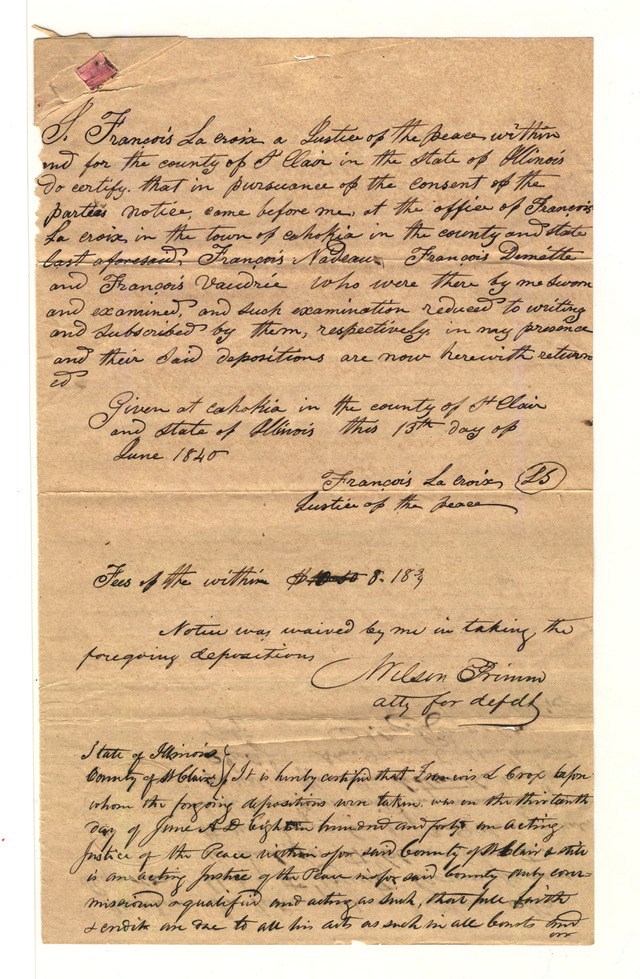 I. François La croix a Justice of the peace within
and for the county of St Clair in the state of Illinois
do certify. that in pursuance of the consent of the
parties notice, came before me, at the office of François
La croix, in the town of cahokia in the county and state
last aforesaid, François Nadeau François Demétte
and François Vaudrie who were there by me sworn
and examined, and such examination reduced to writing
and subscribed by them, respectively. in my presence
and their said depositions are now herewith return
ed
Given at cahokia in the county of St Clair
and state of Illinois this 13th day of
June 1840
François La croix LS
Justice of the peace
Fees of the within 8. 18 3/4
Notice was waived by me in taking the
foregoing depositions
Wilson Primm
atty for defdt
State of Illinois
County of St Clair } It is hereby certified that Francois L Croix before
whom the forgoing depositions were taken was on the thirteenth
day of June A D Eighteen hundred and forty an acting
Justice of the Peace within & for said County of St Clair & state
is an acting Justice of the Peace in & for said County duly com-
missioned & qualified and acting as such, that full faith
& credit are due to all his acts as such in all Courts and
or